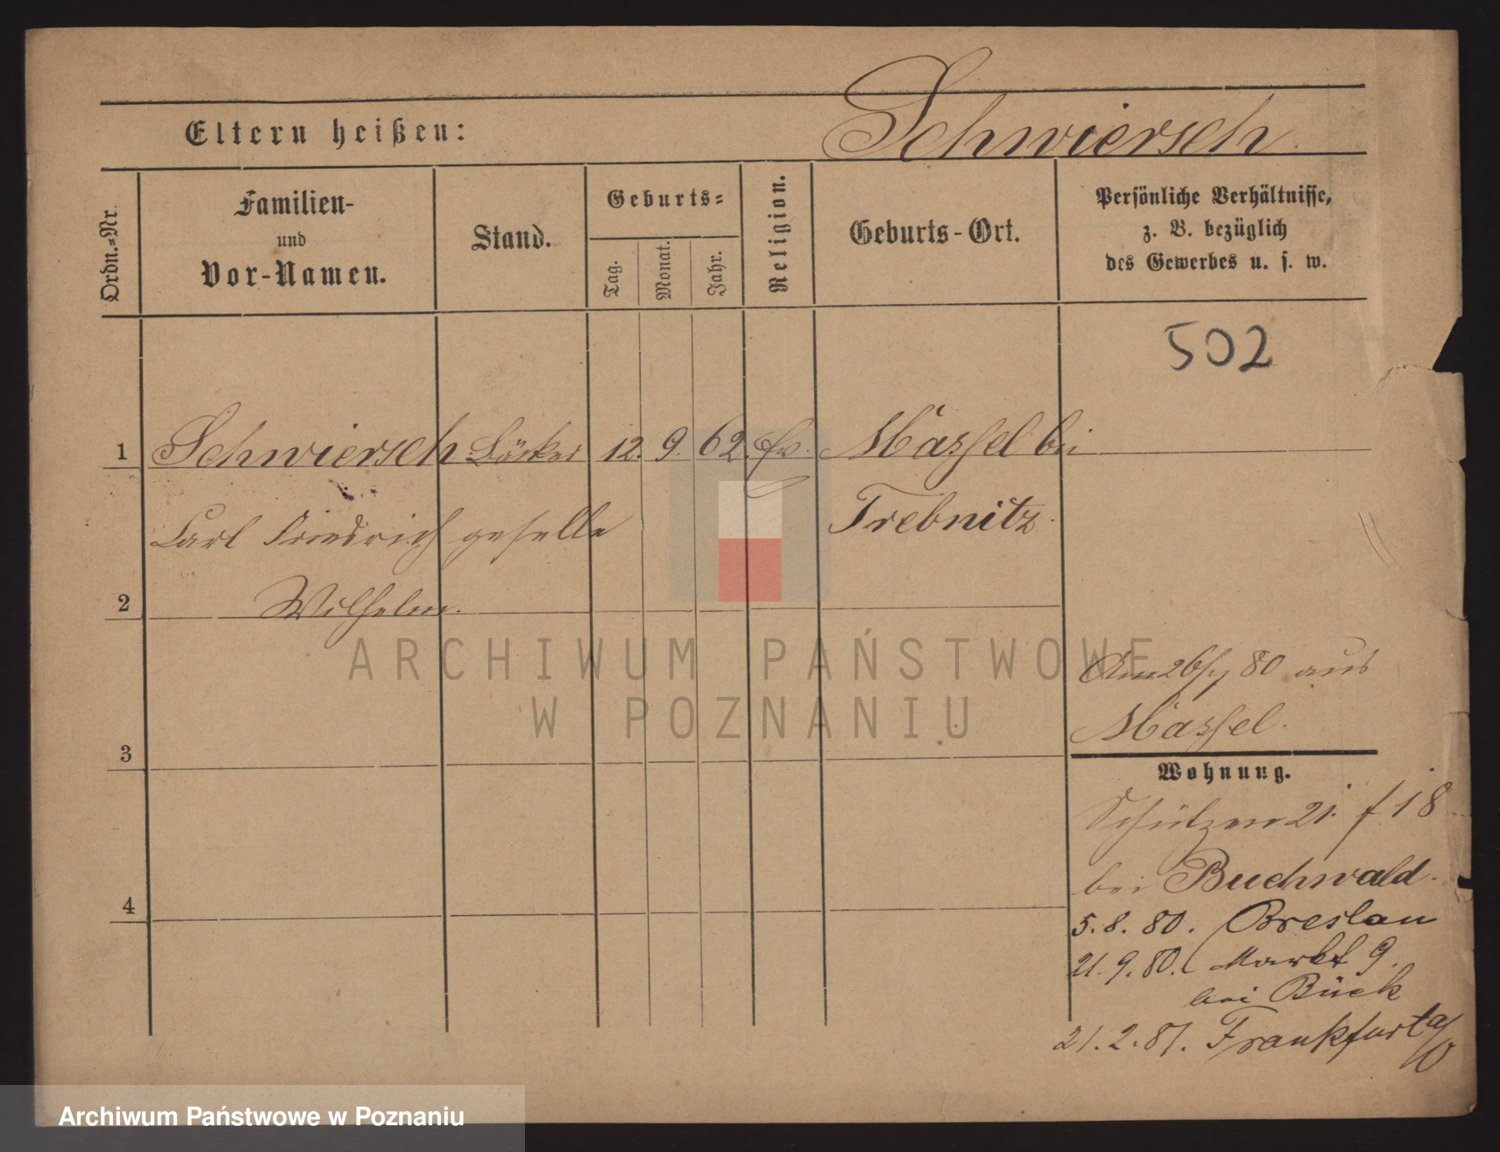 Eltern heißen:
Schwiersch
Ordn.=Nr.
Familien-
und
Vor-Namen.
Stand.
Geburts=
Tag.
Monat.
Jahr.
Religion.
Geburts-Ort.
Persönliche Verhältnisse,
z. B. bezüglich
des Gewerbes u. s. w.
502
1 Schwiersch Bäcker 12. 9. 62. ev. Massel bei
Carl Friedrich geselle Trebnitz.
2 Wilhelm.
ARCHIWUM PAŃSTWOWE
W POZNANIU
Am 26/7 80 aus
Massel.
3
Wohnung.
Schützen 21.
bei Buchwald.
4
5. 8. 80. Breslau
21. 9. 80. Markt 9.
bei Bück
21. 2. 81. Frankfurt a/O
Archiwum Państwowe w Poznaniu